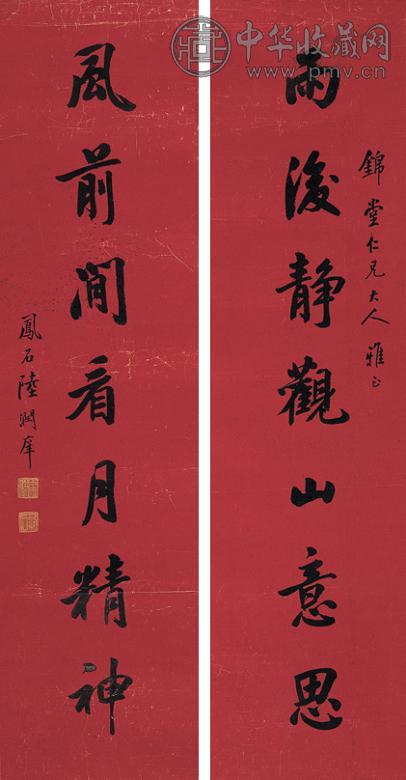 雨後静觀山意思
錦堂仁兄大人雅正
風前閒看月精神
鳳石陸潤庠
中华收藏网
www.pmv.cn